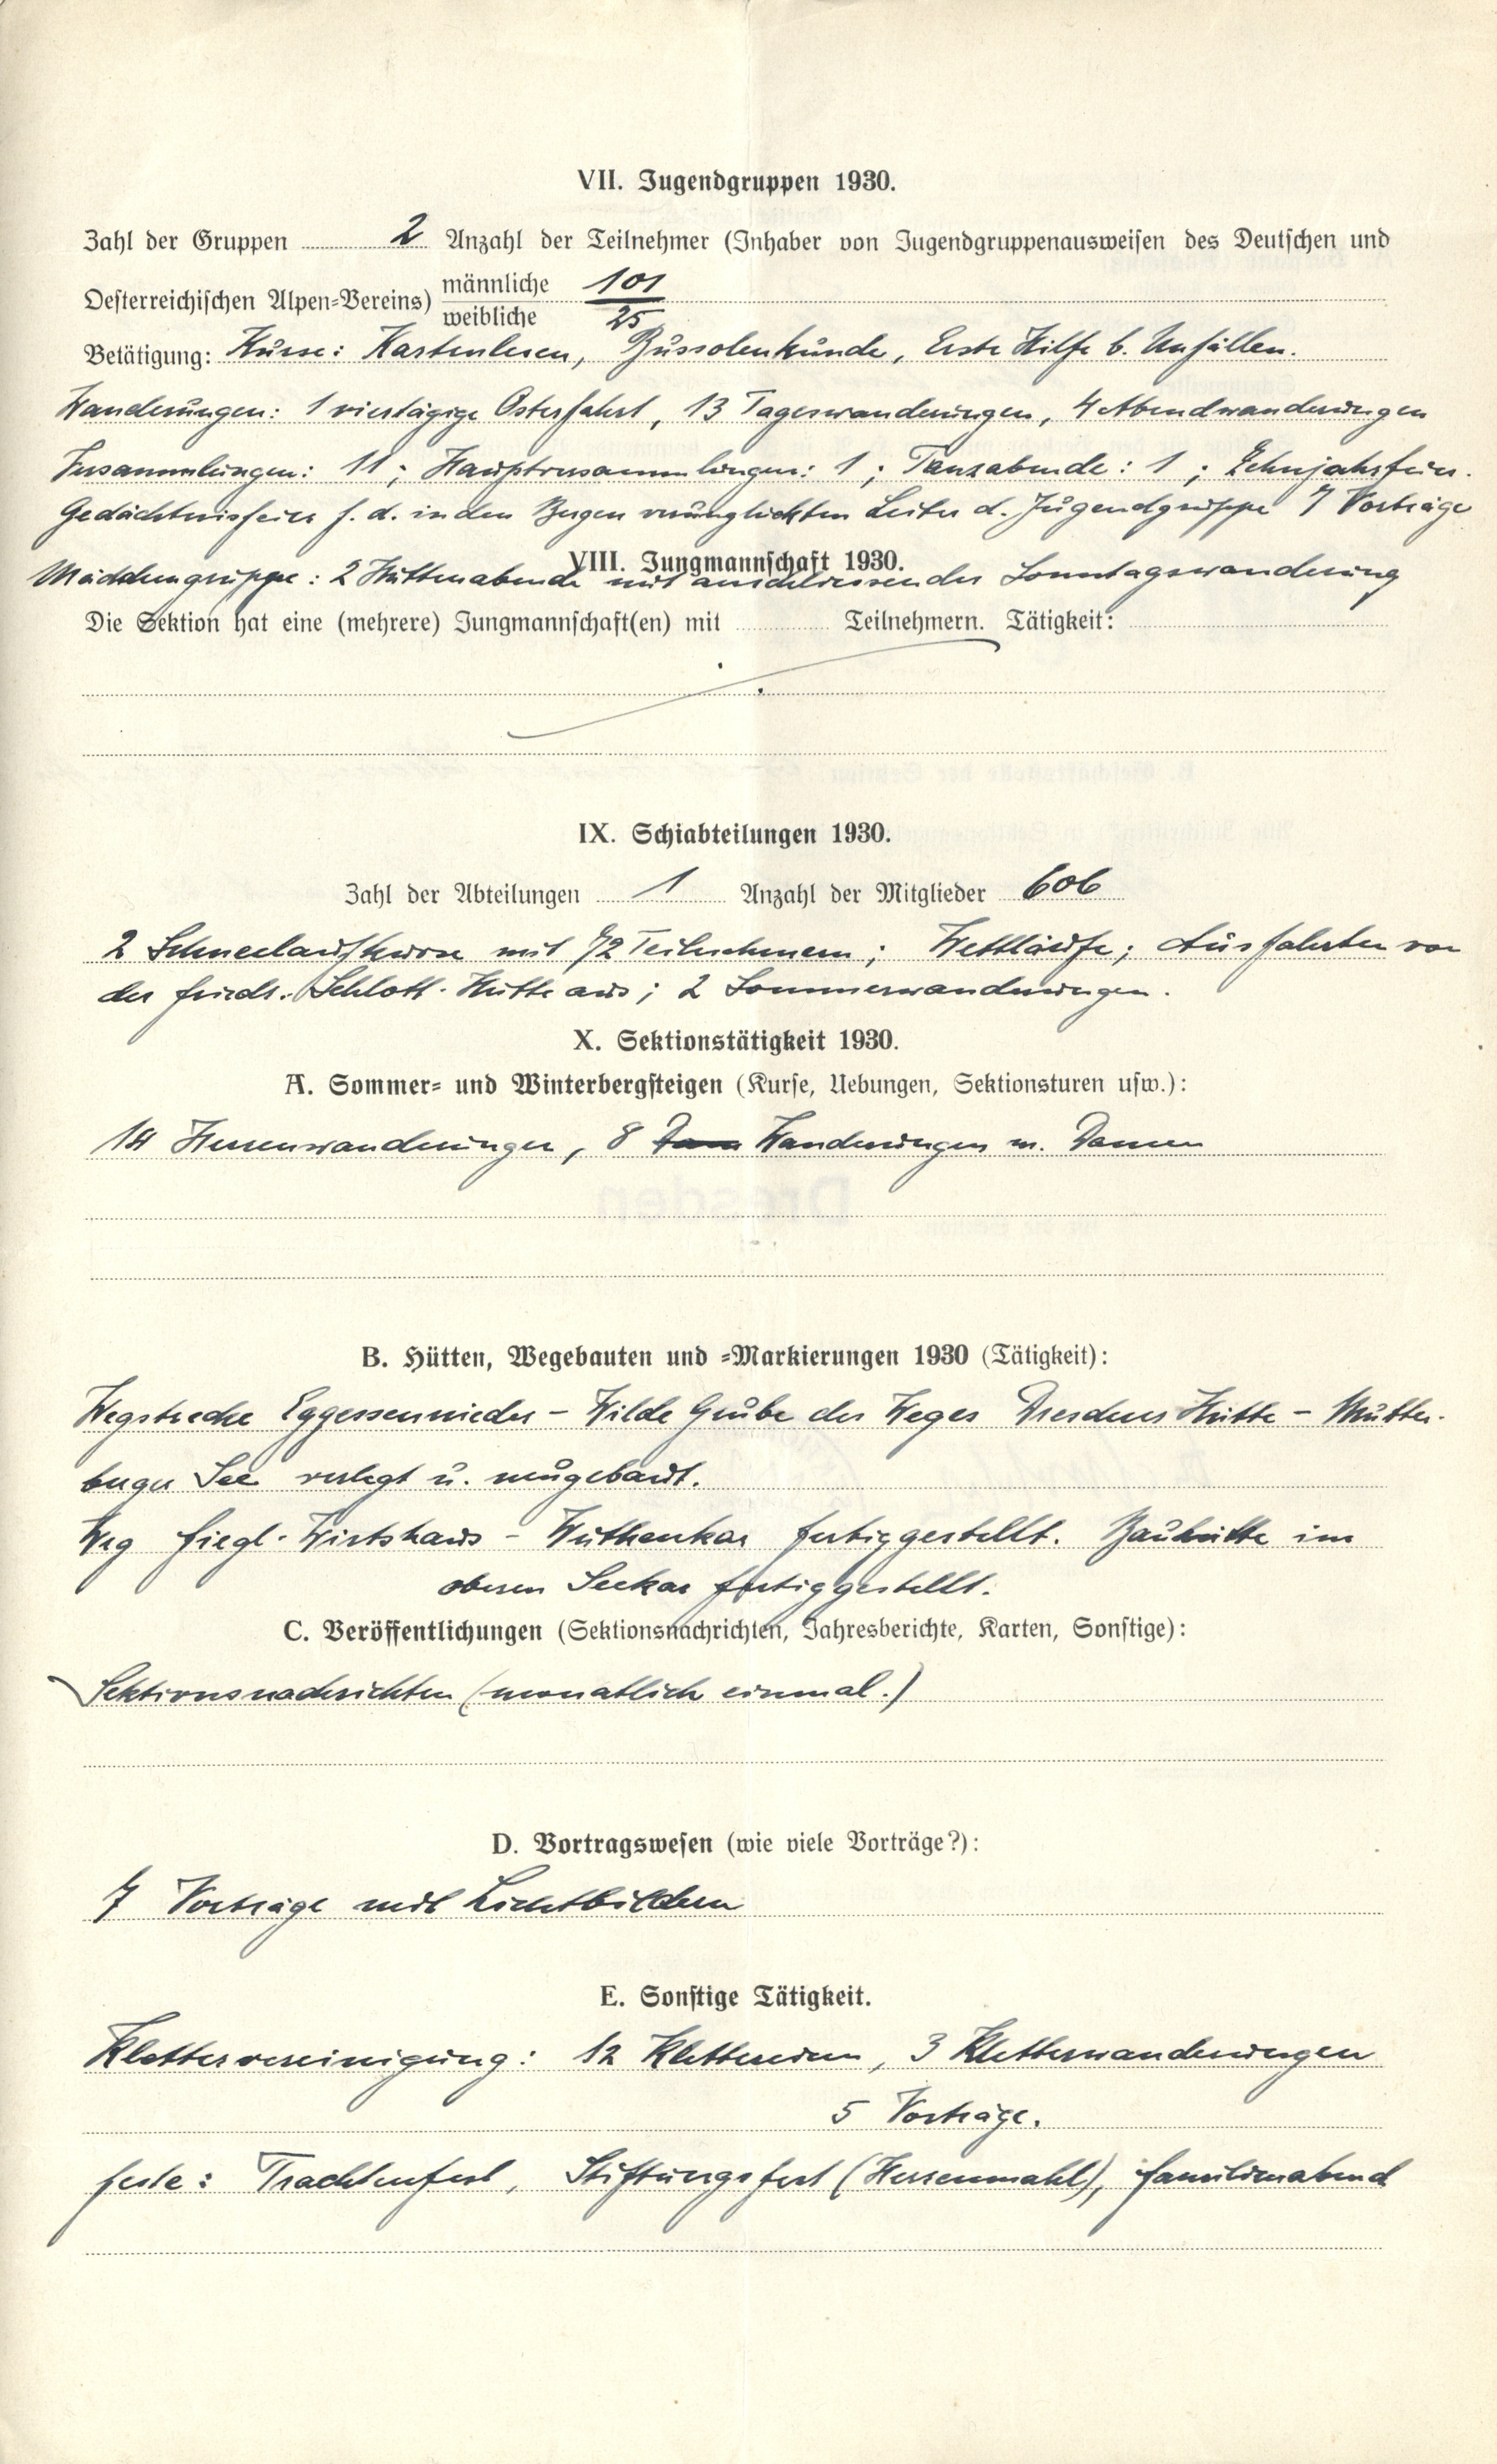 VII. Jugendgruppen 1930.
Zahl der Gruppen 2 Anzahl der Teilnehmer (Inhaber von Jugendgruppenausweisen des Deutschen und
Oesterreichischen Alpen-Vereins) männliche 101
weibliche 25
Betätigung: Kurse: Kartenlesen, Bussolenkunde, Erste Hilfe b. Unfällen.
Wanderungen: 1 viertägige Osterfahrt, 13 Tageswanderungen, 4 Abendwanderungen
Versammlungen: 11; Hauptversammlungen: 1; Tanzabende: 1; Zehnjahrfeier.
Gedächtnisfeier f. d. in den Bergen verunglückten Leiter d. Jugendgruppe 7 Vorträge
VIII. Jungmannschaft 1930.
Mädchengruppe: 2 Hüttenabende mit anschliessender Sonntagswanderung
Die Sektion hat eine (mehrere) Jungmannschaft(en) mit Teilnehmern. Tätigkeit:
IX. Schiabteilungen 1930.
Zahl der Abteilungen 1 Anzahl der Mitglieder 606
2 Schneelaufkurse mit 72 Teilnehmern; Wettläufe; Ausfahrten von
der Friedr. Schlott-Hütte aus; 2 Sommerwanderungen.
X. Sektionstätigkeit 1930.
A. Sommer- und Winterbergsteigen (Kurse, Uebungen, Sektionsturen usw.):
14 Herrenwanderungen, 8 Wanderungen m. Damen
Dresden
B. Hütten, Wegebauten und -Markierungen 1930 (Tätigkeit):
Wegstrecke Eggessennieder - Wilde Grube des Weges Dresdner Hütte - Mutter-
berger See verlegt u. neugebaut.
Weg Fiegl-Wirtshaus - Wütenkar fertiggestellt. Bauhütte im
oberen Seekar fertiggestellt.
C. Veröffentlichungen (Sektionsnachrichten, Jahresberichte, Karten, Sonstige):
Sektionsnachrichten (monatlich einmal.)
D. Vortragswesen (wie viele Vorträge?):
7 Vorträge mit Lichtbildern
E. Sonstige Tätigkeit.
Klettervereinigung: 12 Klettereien, 3 Kletterwanderungen
5 Vorträge.
Feste: Trachtenfest, Stiftungsfest (Herrenmahl), Familienabend